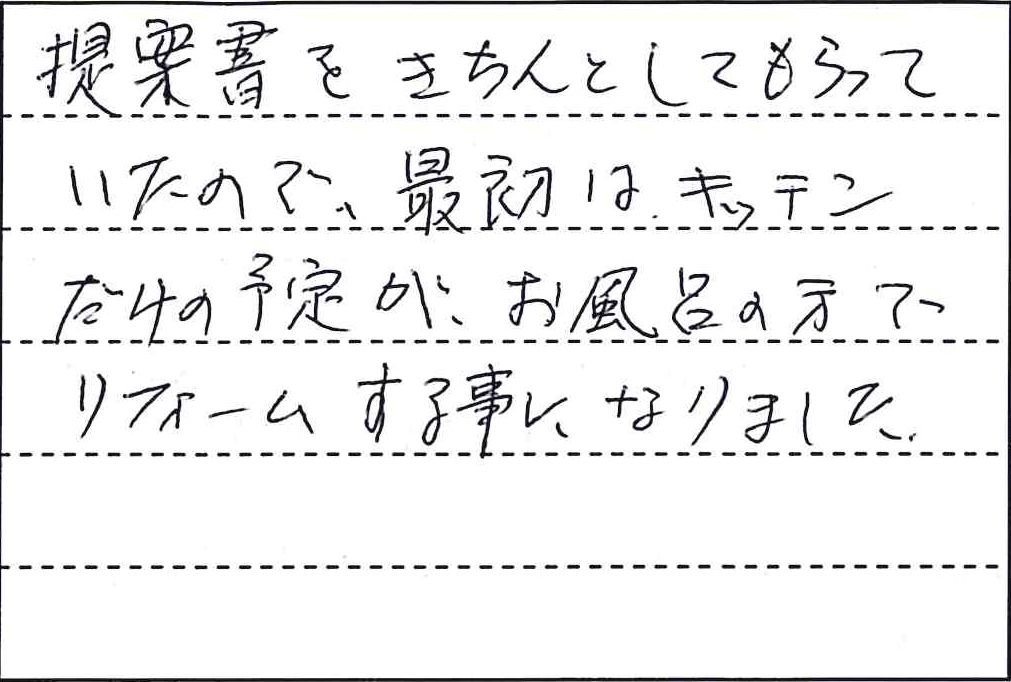 提案書をきちんとしてもらって
いたので、最初は、キッテン
だけの予定が、お風呂の方で
リフォームする事に、なりました。